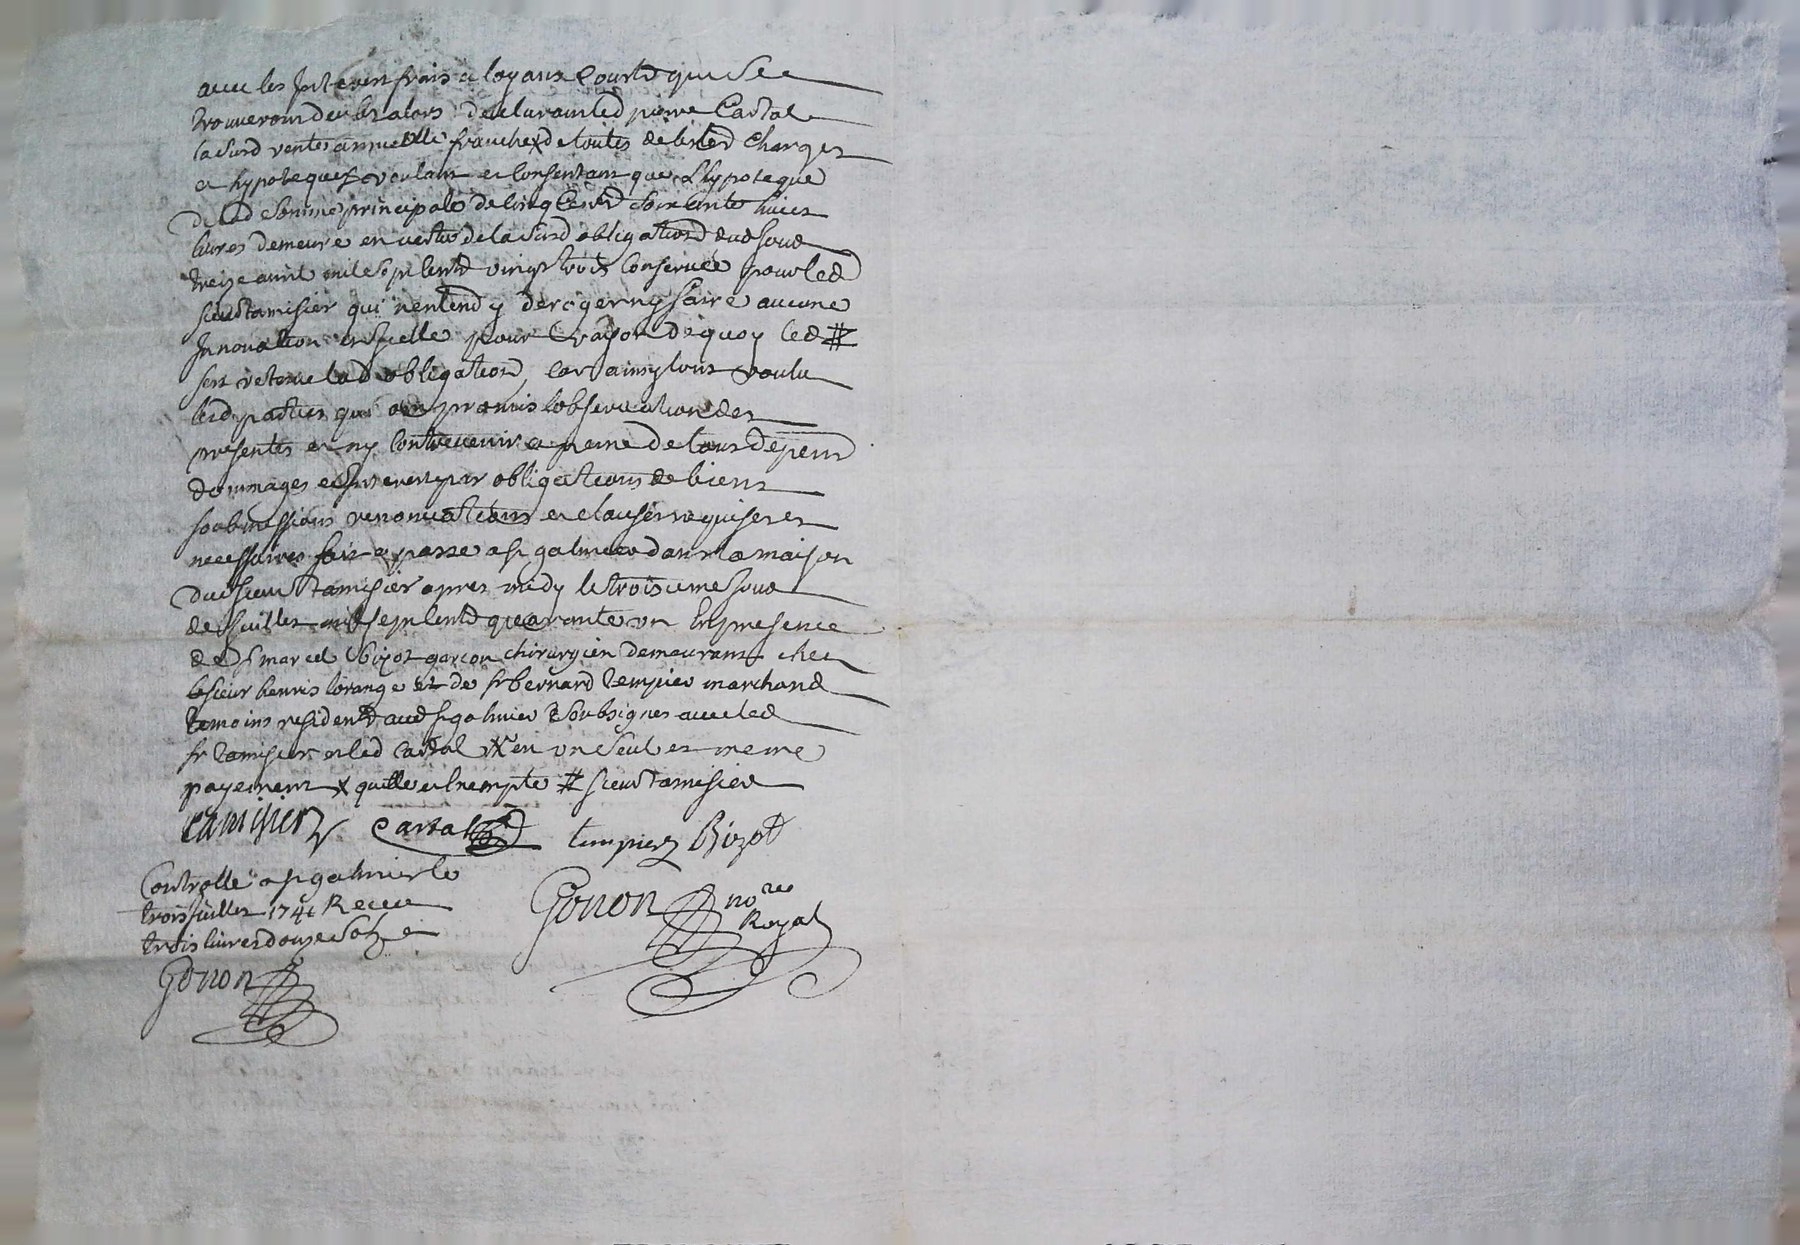 avec les Interest frais et loyaux Coutds qui See
trouveront deubs alors declarant led pierre Cartal
la susd rente annuelle franche X de toutes debtes Charges
et hypoteques voulant et Consentant que Lhypoteque
de lad Somme principale de Cinq Cents Soixante huict
livres demeure en vertu de la susd obligationd dud jour
treize avril mil Sept Centd vingt trois Conservée pour led
sieur tamisier qui nentend y deroger ny faire aucune
Innovation icelle pour Rayson de quoy led #
sert retenue lad obligationd Car ainsy lont voulu
lesd parties qui ont promis lobservation des
presentes et ny Contrevenir a peine de tous depend
dommages et Interest par obligations de biens
soubmissions renonciations et clauses requises et
necessaires fait et passe a st galmier dans la maison
dud sieur tamisier apres midy le troisieme jour
de juillet mil sept Centd quarante un En presence
de sr marcel Bizot garcon chirurgien demeurant chez
le sieur henris lorange et de sr bernard tempier marchand
temoins residentd aud st galmier Soubsignes avec led
sr tamisier et led Cartal X en un Seul et meme
payement X quitte et Exempte # sieur tamisier
tamisier Cartal tempier Bizot
Controlle a st galmier le
trois juillet 1741 Receu
trois livres douze Sols
Gonon
Gonon nore
Royal